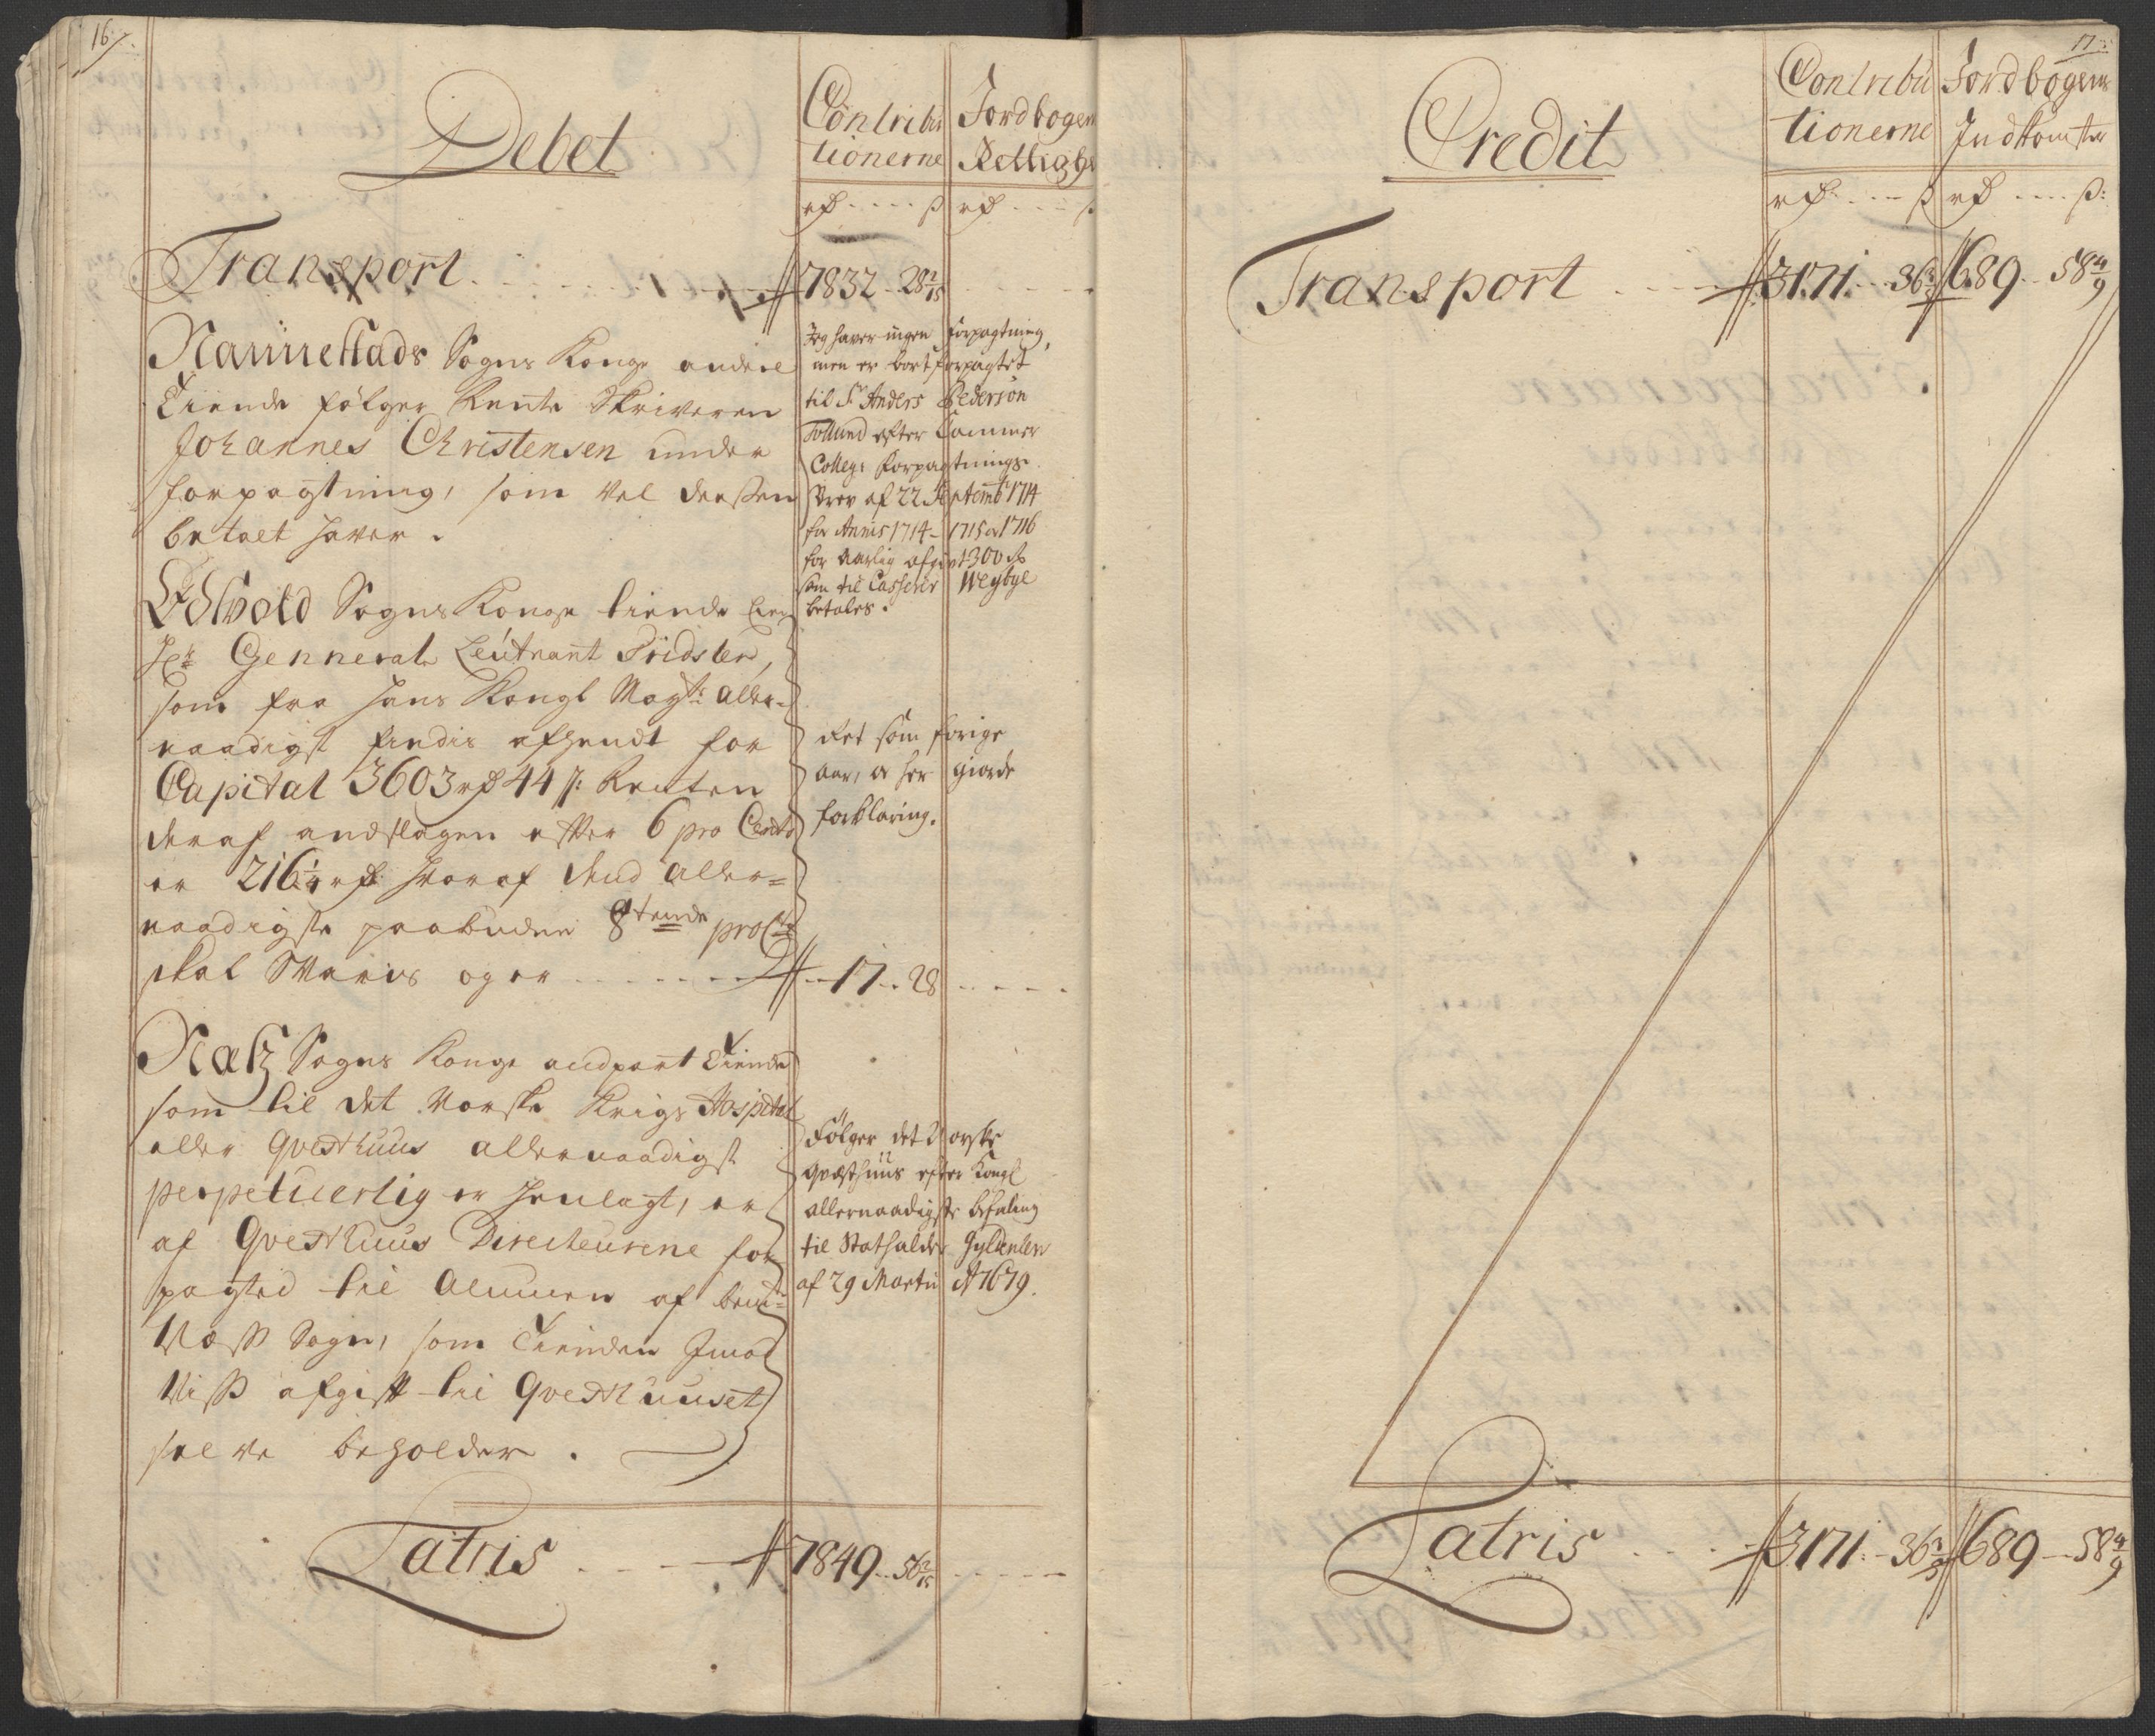 16.
Debet
Contribu
tionerne
Jordbogen
Rettighe
rd ---- ß
rd --- ß
Transport
7832 - 28 2/15
Nannestads Sogns Konge andeel
Tiende følger Rente Skriveren
Johannes Christensen under
forpagtning, som vel derssen
betalt haver.
Jeg haver ingen forpagtning,
men er bortforpagtet
til Sr Anders Pedersøn
Tollund efter Cammer
Colleg: forpagtnings
Brev af 22 Septembr 1714
for Annis 1714 - 1715 & 1716
for aarlig afgivt 300 rd
som til Casserer Weybye
betales.
Eidsvold Sogns Konge tiende
Hr: Gennerale Leutnant Tridsler,
som fra hans Kongl Mayts aller-
naadigst findis afhendt for
Capital 3603 rd 44 ß: Renten
deraf andslagen efter 6 pro Cento
er 216 1/4 rd: hvoraf dend aller=
naadigste paabudne 8tende pro Cto
skal Svaris og er
17 - 28
det som forige
aar, er her giorde
forklaring.
Næs Sogns Konge andpart Tiende
som til det Norske Krigs Hospital
eller Qvesthuus allernaadigst
perpetuerlig er henlagt, er
af Qvesthuus Directeurene for
pagted til Almuen af bem:te
Næss Sogn, som Tienden Jmod
Viss afgift til Qvesthuuset
selve beholder.
Følger det Norske
Qvæsthuus efter Kongl
allernaadigste befaling
til Stathalder Gyldenlew
af 29 Martii Ao 1679.
Latris
7849 - 56 2/15
17
Credit
Contribu
tionerne
Jordbogens
Indkomster
rd: --- ß
rd ---- ß:
Transport
3171 - 36 2/5
689 - 58 4/9
Latris
3171 - 36 2/5
689 - 58 4/9